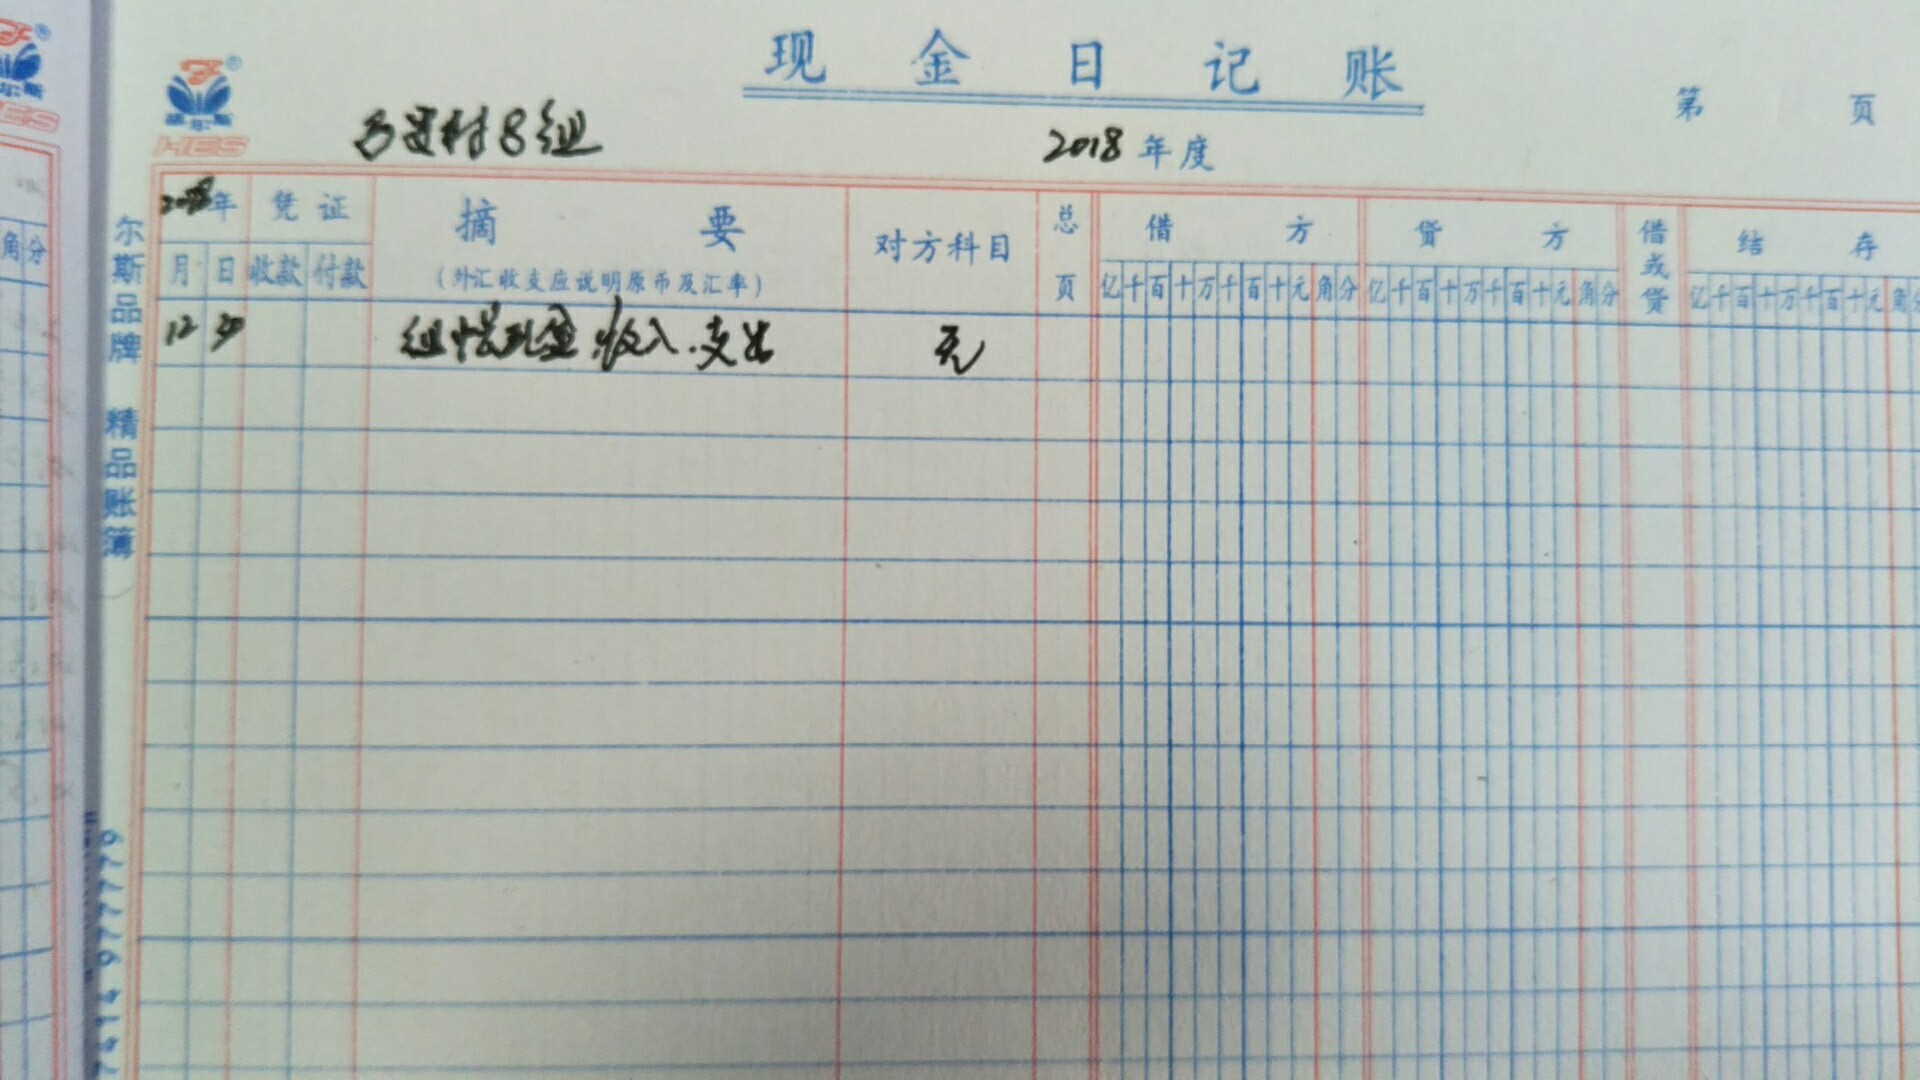 现金日记账
第 页
HES
村8组
2018年度
2018年 凭证 摘要 对方科目 总页 借方 贷方 借或贷 结存
月 日 收款 付款 (外汇收支应说明原币及汇率) 亿千百十万千百十元角分 亿千百十万千百十元角分 亿千百十万千百十元角
12 30 组 现金收入.支出 元
尔斯品牌 精品账簿
角分